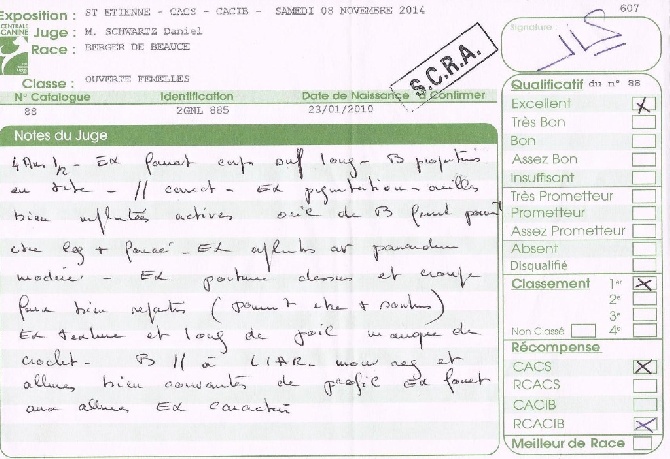 607
Exposition : ST ETIENNE - CACS - CACIB - SAMEDI 08 NOVEMBRE 2014
CENTRALE CANINE
Juge : M. SCHWARTZ Daniel
Race : BERGER DE BEAUCE
Classe : OUVERTE FEMELLES
S.C.R.A.
Signature
N° Catalogue Identification Date de Naissance à Confirmer
88 2GNL 885 23/01/2010
Notes du Juge
4 Ans 1/2 - Ex format corps suf long - B proportions
en tête - // correct - Ex pigmentation - oreilles
bien attachées actives oeil de B
être leg + foncé - Ex aplombs av
modéré - Ex dessus et croupe
bien
Ex texture et long de poil manque de
crochet - B // à L'AR - et
allures bien de profil Ex fouet
aux allures Ex caractère
Qualificatif du n° 88
Excellent X
Très Bon
Bon
Assez Bon
Insuffisant
Très Prometteur
Prometteur
Assez Prometteur
Absent
Disqualifié
Classement 1er X
2e
3e
Non Classé 4e
Récompense
CACS X
RCACS
CACIB
RCACIB X
Meilleur de Race